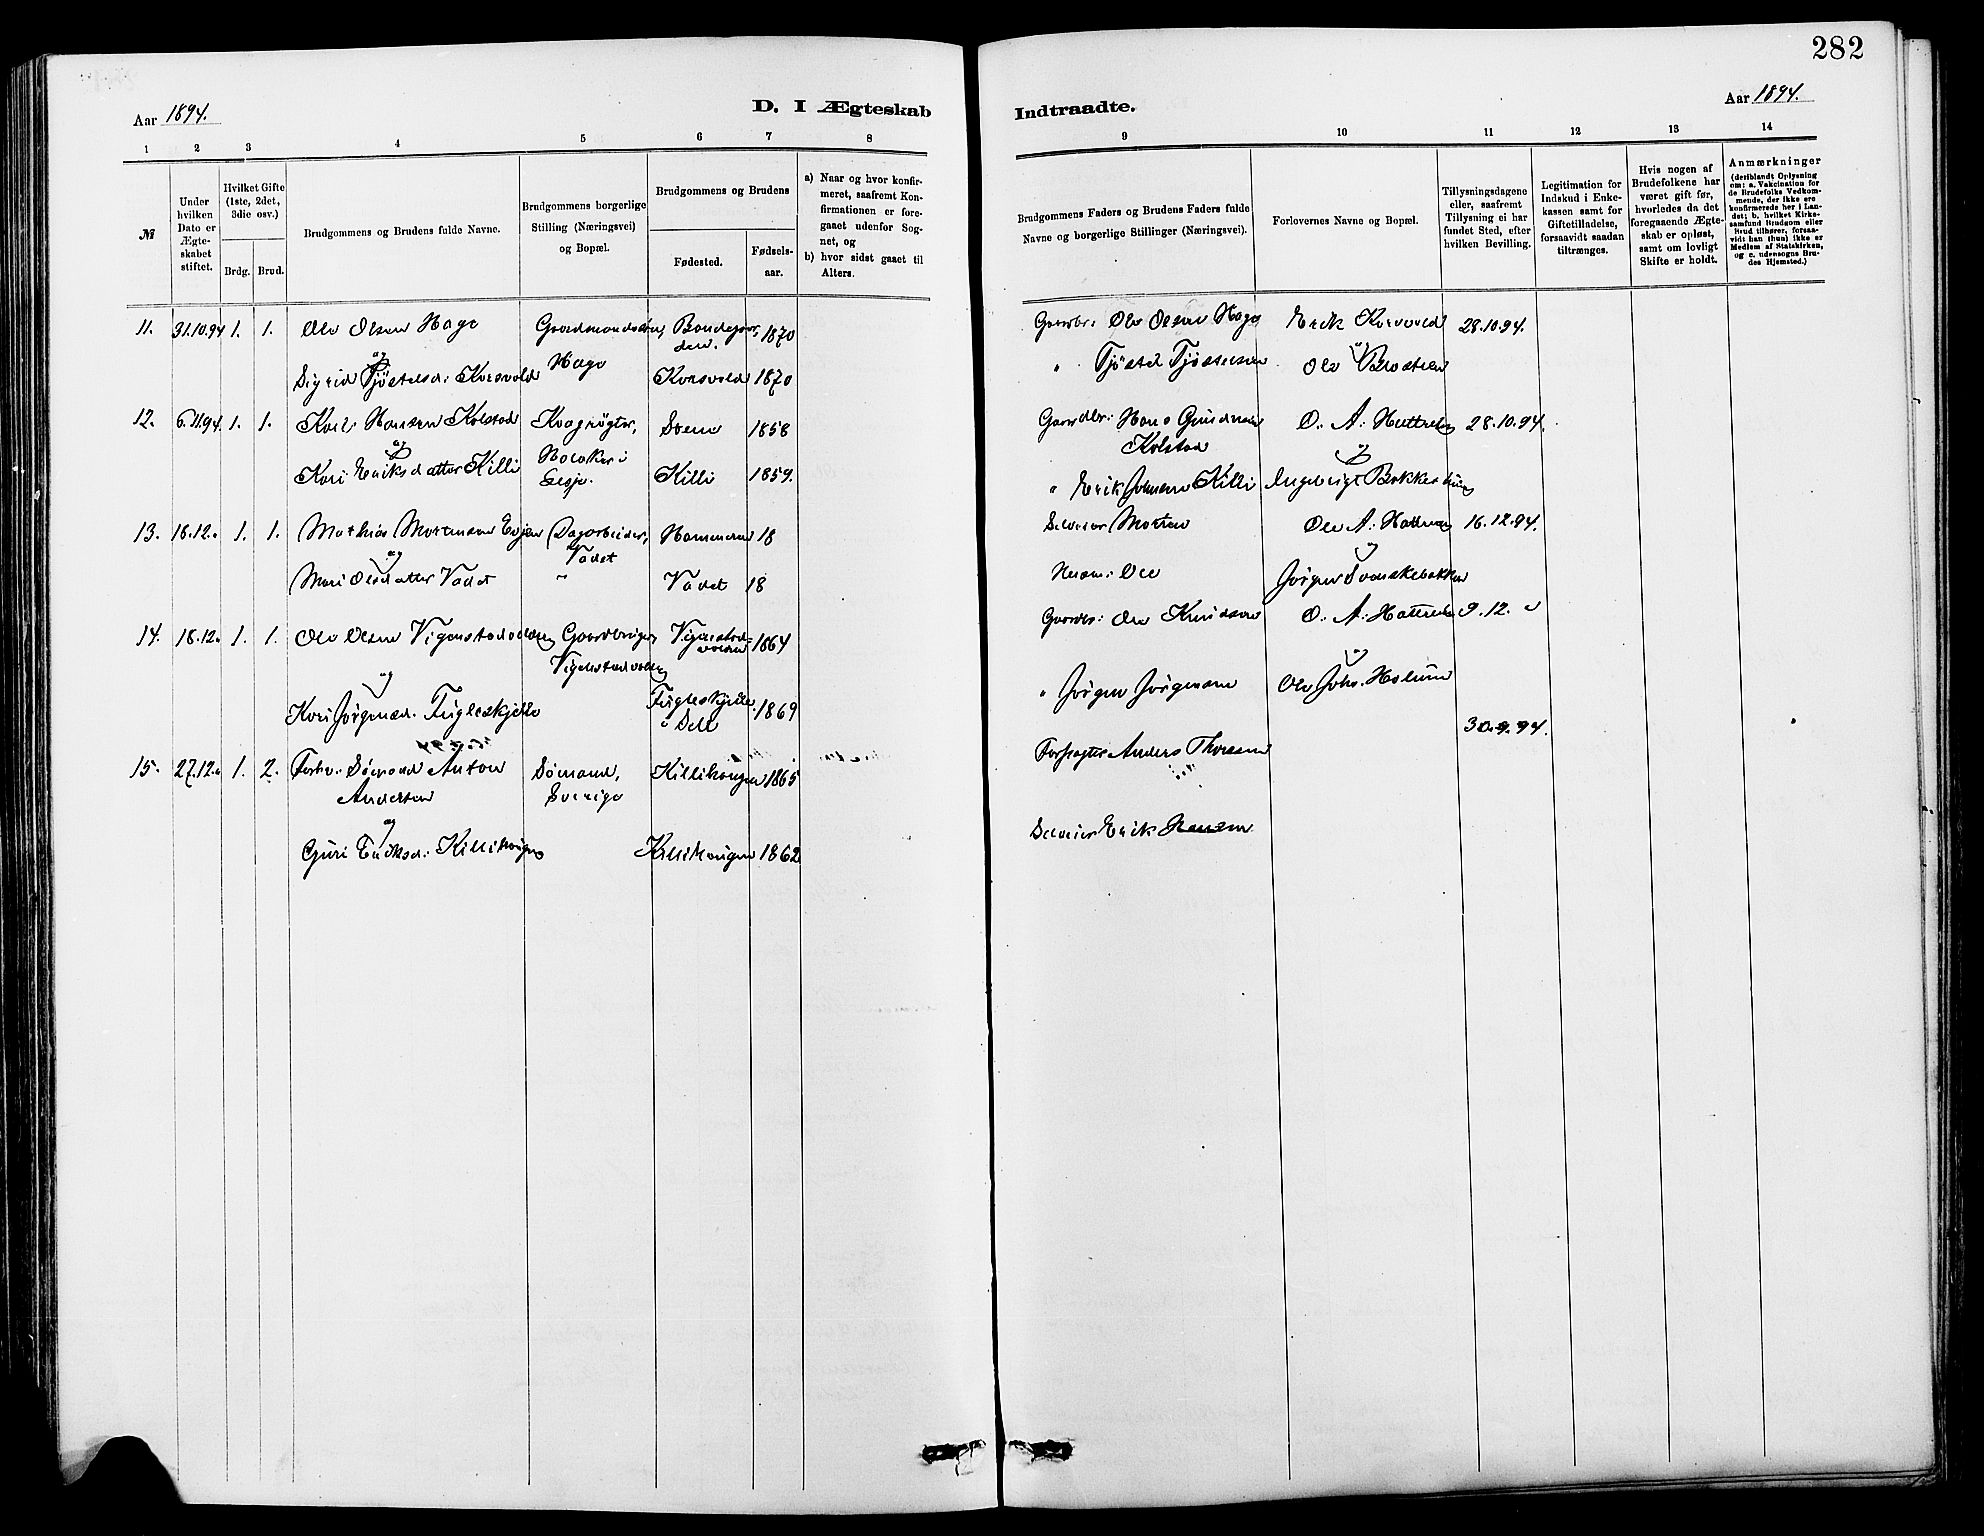 282
Aar 1894.
D. I Ægteskab
Indtraadte.
Aar 1894.
1 2 3 4 5 6 7 8
9 10 11 12 13 14
№
Under hvilken Dato er Ægteskabet stiftet.
Hvilket Gifte (1ste, 2det, 3die osv.)
Brdg. Brud.
Brudgommens og Brudens fulde Navne.
Brudgommens borgerlige Stilling (Næringsvei) og Bopæl.
Brudgommens og Brudens
Fødested.
Fødselsaar.
a) Naar og hvor konfirmeret, saafremt Konfirmationen er foregaaet udenfor Sognet, og
b) hvor sidst gaaet til Alters.
Brudgommens Faders og Brudens Faders fulde Navne og borgerlige Stillinger (Næringsvei).
Forlovernes Navne og Bopæl.
Tillysningsdagene eller, saafremt Tillysning ei har fundet Sted, efter hvilken Bevilling.
Legitimation for Indskud i Enkekassen samt for Giftetilladelse, forsaavidt saadan tiltrænges.
Hvis nogen af Brudefolkene har været gift før, hvorledes da det foregaaende Ægteskab er opløst, samt om lovligt Skifte er holdt.
Anmærkninger
(deriblandt Oplysning om: a. Vakcination for de Brudefolks Vedkommende, der ikke ere konfirmerede her i Landet; b. hvilket Kirkesamfund Brudgom eller Brud tilhører, forsaavidt han (hun) ikke er Medlem af Statskirken, og c. udensogns Brudes Hjemsted.)
11. 31.10.94 1. 1. Ole Olsen Hage Gaardmandssøn, Hage Bondegarden. 1870 Gaardbr: Ole Olsen Hage Erik Korsvold 28.10.94.
og
Sigrid Tjøstelsd: Korsvold Korsvold 1870 " Tjøstel Tjøstelsen og Ole Bløtren
12. 6.11.94. 1. 1. Karl Hansen Kolstad Kvægrøgter, Sveen 1858 Gaardbr: Hans Gundersen Kolstad O. A. Hattrem 28.10.94.
og
Kari Eriksdatter Killi Holaker i Lesje. Killi 1859. " Erik Johnsen Killi og Ingebrigt Bakkehaug
13. 18.12. 1. 1. Mathias Mortensen Evjen Dagarbeider, Vadet Hammeren 18 Selveier Morten Ole A. Hattrem 16.12.94.
og
Mari Olsdatter Vadet " Vadet 18 Husm: Ole og Jørgen Svanskebakken
14. 18.12. 1. 1. Ole Olsen Vigenstadvolden Gaardbruger, Vigenstadvolden Vigenstadvolden 1864 Gaardbr: Ole Knudsen O. A. Hattrem 9.12. "
og
Kari Jørgensd. Fugleskjelle Fugleskjelle i Sell 1869 " Jørgen Jørgensen og Ole Johs. Holum
30.9.94.
15. 27.12. 1. 2. Forhv. Sømand Anton Andersen Sømand, Sverige Killihaugen 1865 Forpagter Anders Thoresen
og
Guri Eriksd. Killihaugen Killihaugen 1862 Selveier Erik Hansen